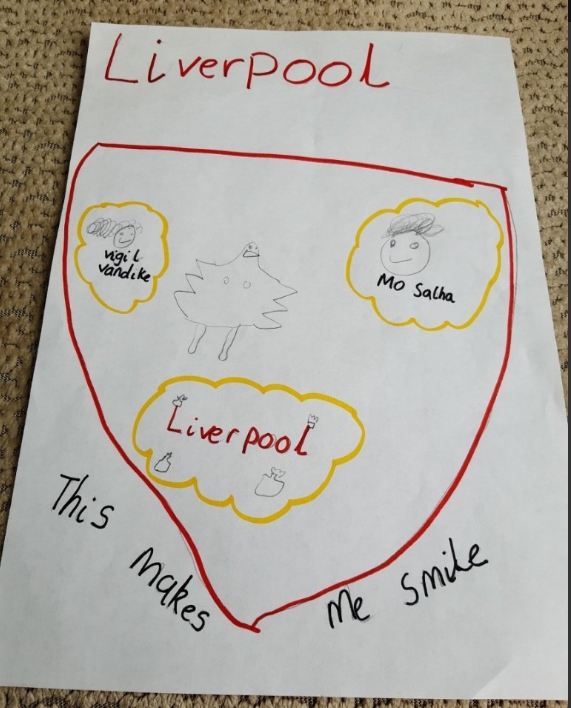 Liverpool
vigil
vandike
Mo Salha
Liverpool
This
Makes
Me Smile